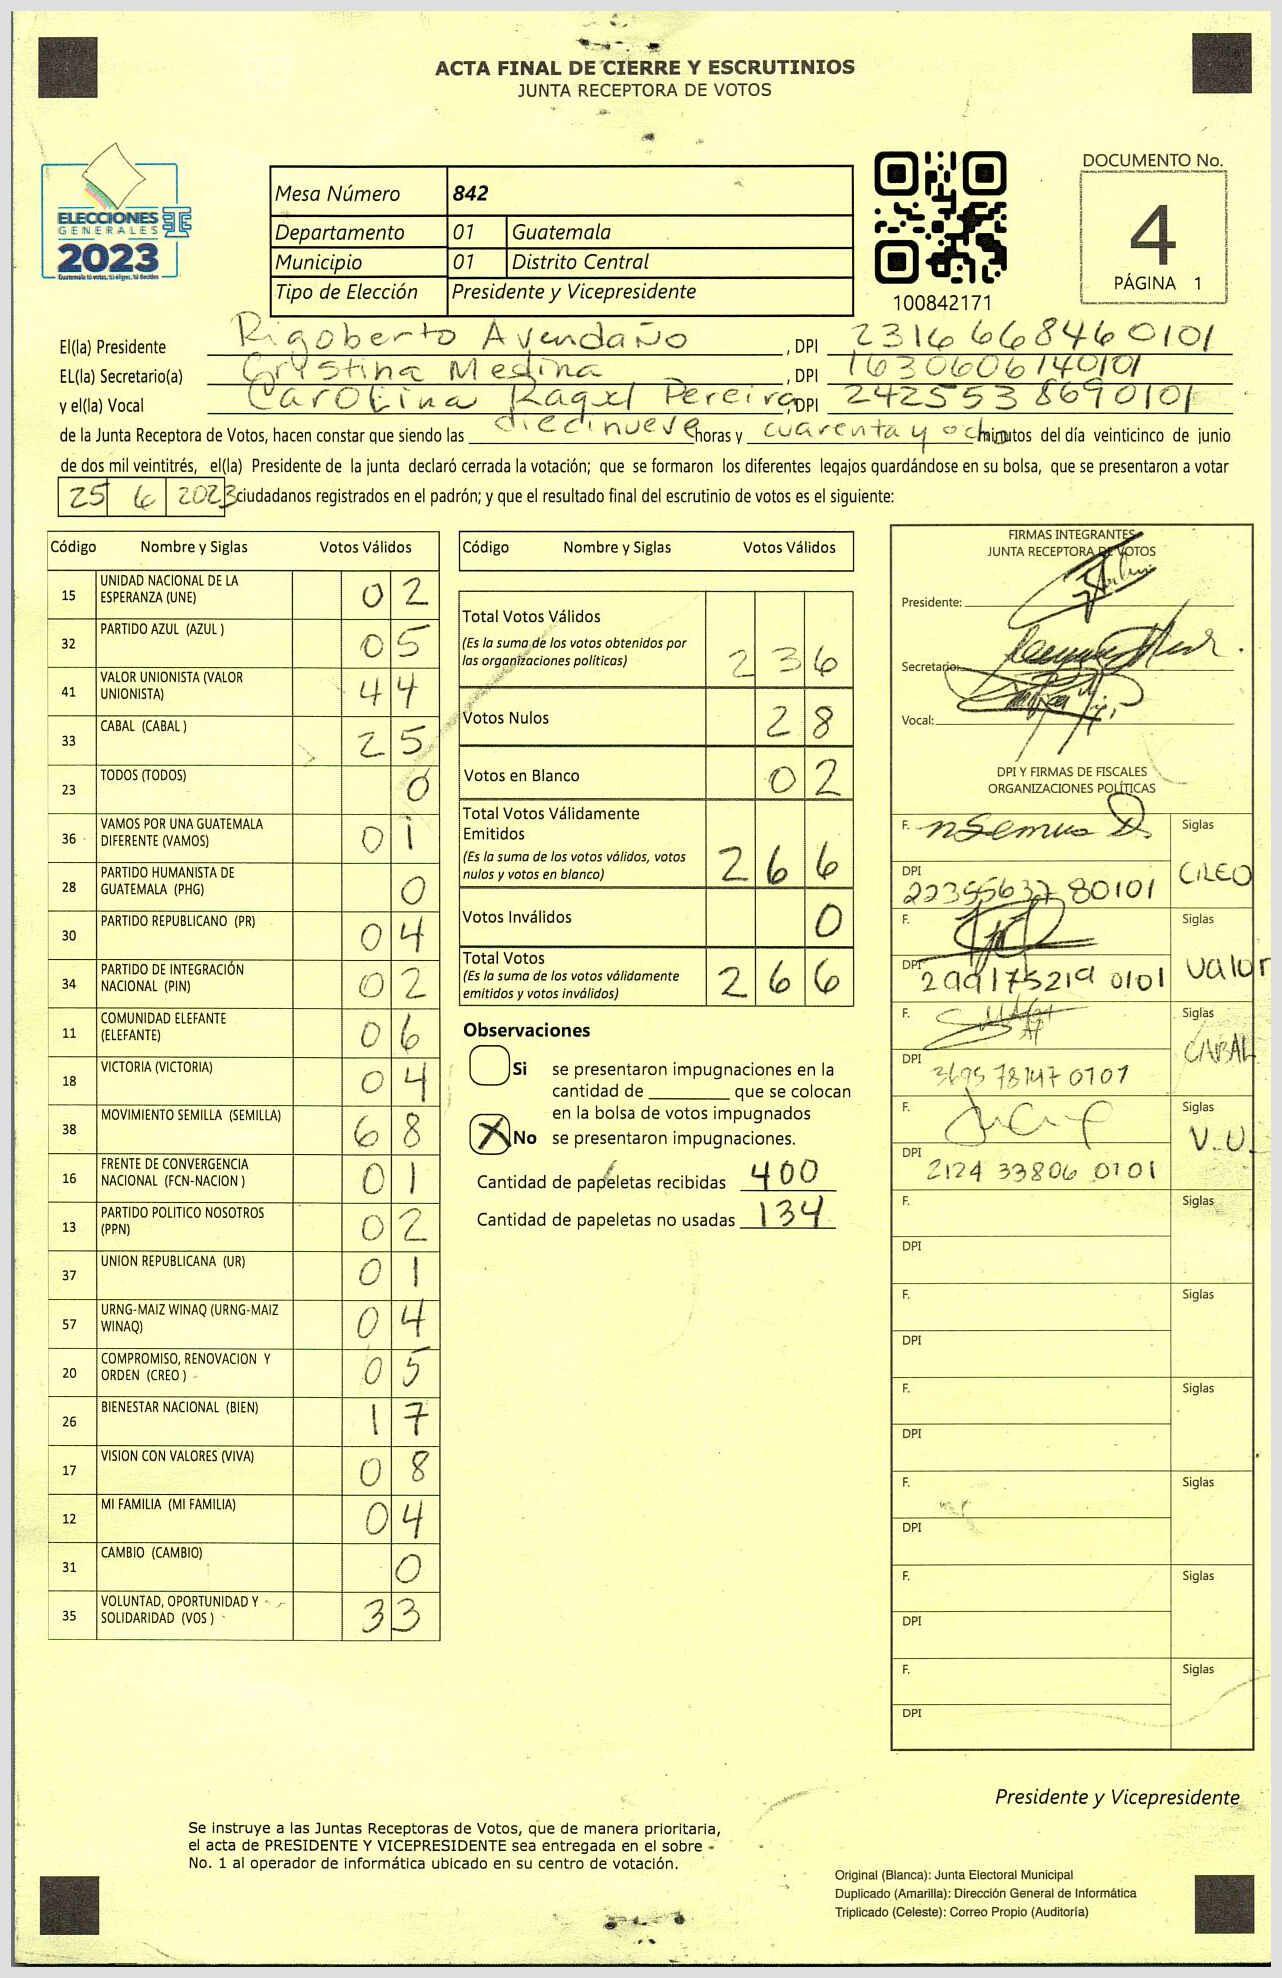 ACTA FINAL DE CIERRE Y ESCRUTINIOS
JUNTA RECEPTORA DE VOTOS
ELECCIONES
GENERALES
2023
Guatemala tú votas, tú eliges, tú decides
Mesa Número 842
Departamento 01 Guatemala
Municipio 01 Distrito Central
Tipo de Elección Presidente y Vicepresidente
100842171
DOCUMENTO No.
4
PÁGINA 1
El(la) Presidente Rigoberto Avendaño, DPI 2316668460101
EL(la) Secretario(a) Crystina Medina, DPI 1630606140101
y el(la) Vocal Carolina Raquel Pereira, DPI 2425538690101
de la Junta Receptora de Votos, hacen constar que siendo las diecinueve horas y cuarenta y ocho minutos del día veinticinco de junio
de dos mil veintitrés, el(la) Presidente de la junta declaró cerrada la votación; que se formaron los diferentes legajos guardándose en su bolsa, que se presentaron a votar
25 6 2023 ciudadanos registrados en el padrón; y que el resultado final del escrutinio de votos es el siguiente:
Código Nombre y Siglas Votos Válidos
15 UNIDAD NACIONAL DE LA ESPERANZA (UNE) 02
32 PARTIDO AZUL (AZUL ) 05
41 VALOR UNIONISTA (VALOR UNIONISTA) 44
33 CABAL (CABAL ) 25
23 TODOS (TODOS) 0
36 VAMOS POR UNA GUATEMALA DIFERENTE (VAMOS) 01
28 PARTIDO HUMANISTA DE GUATEMALA (PHG) 0
30 PARTIDO REPUBLICANO (PR) 04
34 PARTIDO DE INTEGRACIÓN NACIONAL (PIN) 02
11 COMUNIDAD ELEFANTE (ELEFANTE) 06
18 VICTORIA (VICTORIA) 04
38 MOVIMIENTO SEMILLA (SEMILLA) 68
16 FRENTE DE CONVERGENCIA NACIONAL (FCN-NACION ) 01
13 PARTIDO POLITICO NOSOTROS (PPN) 02
37 UNION REPUBLICANA (UR) 01
57 URNG-MAIZ WINAQ (URNG-MAIZ WINAQ) 04
20 COMPROMISO, RENOVACION Y ORDEN (CREO ) 05
26 BIENESTAR NACIONAL (BIEN) 17
17 VISION CON VALORES (VIVA) 08
12 MI FAMILIA (MI FAMILIA) 04
31 CAMBIO (CAMBIO) 0
35 VOLUNTAD, OPORTUNIDAD Y SOLIDARIDAD (VOS ) 33
Código Nombre y Siglas Votos Válidos
Total Votos Válidos 236
(Es la suma de los votos obtenidos por
las organizaciones políticas)
Votos Nulos 28
Votos en Blanco 02
Total Votos Válidamente
Emitidos 266
(Es la suma de los votos válidos, votos
nulos y votos en blanco)
Votos Inválidos 0
Total Votos 266
(Es la suma de los votos válidamente
emitidos y votos inválidos)
Observaciones
Si se presentaron impugnaciones en la
cantidad de ________ que se colocan
en la bolsa de votos impugnados
X No se presentaron impugnaciones.
Cantidad de papeletas recibidas 400
Cantidad de papeletas no usadas 134
FIRMAS INTEGRANTES
JUNTA RECEPTORA DE VOTOS
Presidente:
Secretario:
Vocal:
DPI Y FIRMAS DE FISCALES
ORGANIZACIONES POLÍTICAS
F. Siglas
DPI 2235563780101
F. Siglas Valor
DPI 299175219 0101
F. Siglas CABAL
DPI 3695 78147 0101
F. Siglas V.U.
DPI 2124 33806 0101
F. Siglas
DPI
F. Siglas
DPI
F. Siglas
DPI
F. Siglas
DPI
F. Siglas
DPI
F. Siglas
DPI
Presidente y Vicepresidente
Se instruye a las Juntas Receptoras de Votos, que de manera prioritaria,
el acta de PRESIDENTE Y VICEPRESIDENTE sea entregada en el sobre
No. 1 al operador de informática ubicado en su centro de votación.
Original (Blanca): Junta Electoral Municipal
Duplicado (Amarilla): Dirección General de Informática
Triplicado (Celeste): Correo Propio (Auditoría)